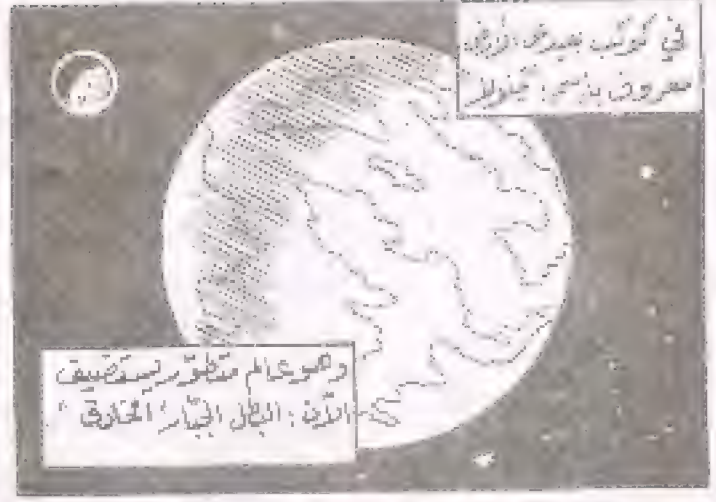 في كوكب بعيد عن الأرض
معروف باسم:
وهو عالم متطوّر يستضيف
الآن: البطل الجبّار "الخارق"